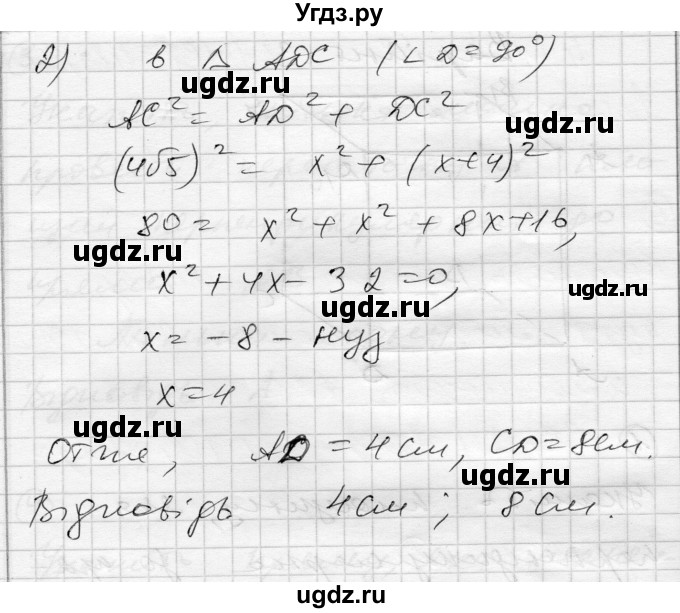 Угдз.ру
2) в Δ ADC (∠D=90°)
ugdz.ru ugdz.ru
AC² = AD² + DC²
ugdz.ru
(4√5)² = x² + (x+4)²
80 = x² + x² + 8x+16,
ugdz.ru
x² + 4x - 32 = 0,
ugdz.ru ugdz.ru
x = -8 - нуз
x = 4
ugdz.ru
Отже, AD = 4 см, CD = 8 см.
ugdz.ru
Відповідь 4 см ; 8 см.
ugdz.ru
ugdz.ru